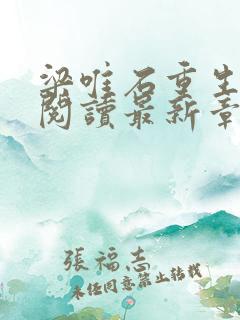 梁唯石重生
閱讀最新章
張福志
未经同意禁止转载